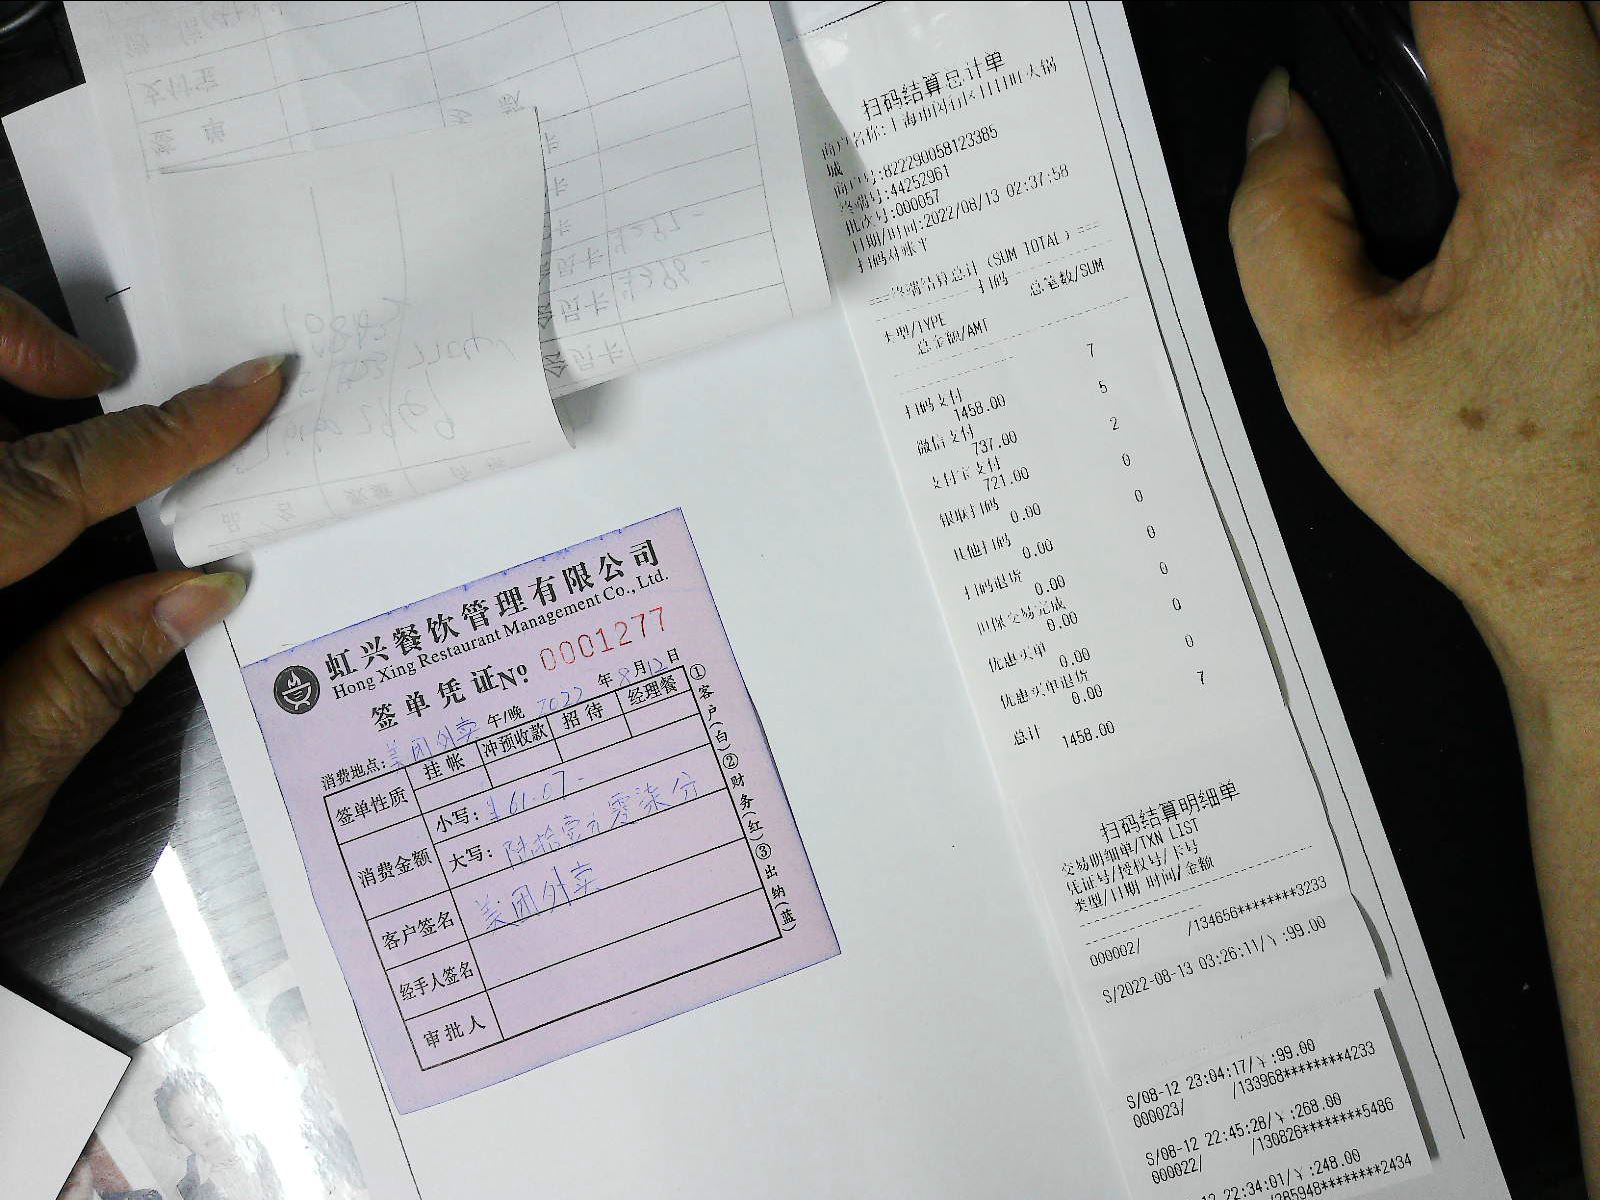 虹兴餐饮管理有限公司
Hong Xing Restaurant Management Co.,Ltd.
签单凭证No. 0001277
消费地点:美团外卖 午/晚 2022年8月12日
签单性质 挂帐 冲预收款 招待 经理餐
消费金额 小写:¥61.07-
大写:陆拾壹元零柒分
客户签名 美团外卖
经手人签名
审批人
①客户(白)②财务(红)③出纳(蓝)
扫码结算总计单
商户名称:上海市闵行区日日旺火锅
城
商户号:822290058123385
终端号:44252961
批次号:000057
日期/时间:2022/08/13 02:37:58
扫码对账平
===终端结算总计 (SUM TOTAL) ===
扫码
类型/TYPE 总笔数/SUM
总金额/AMT
扫码支付 7
1458.00
微信支付 5
737.00
支付宝支付 2
721.00
银联扫码 0
0.00
其他扫码 0
0.00
扫码退货 0
0.00
担保交易完成 0
0.00
优惠买单 0
0.00
优惠买单退货 0
0.00
总计 7
1458.00
扫码结算明细单
交易明细单/TXN LIST
凭证号/授权号/卡号
类型/日期 时间/金额
000002/ /134656********3233
S/2022-08-13 03:26:11/人:99.00
S/08-12 23:04:17/人:99.00
000023/ /133968********4233
S/08-12 22:45:28/人:268.00
000022/ /130826********5486
22:34:01/人:248.00
/285948********2434